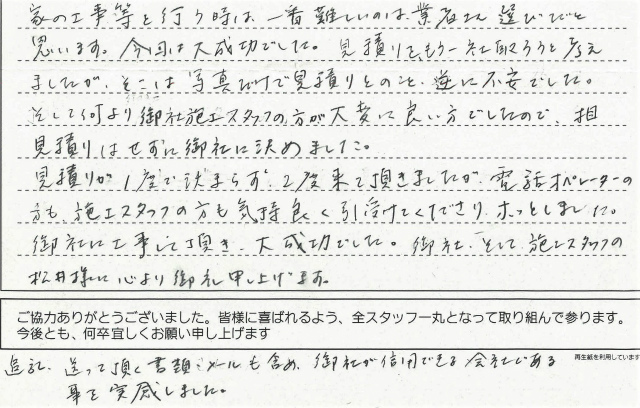 家の工事等を行う時は、一番難しいのは、業者さん選びだと
思います。今回は大成功でした。見積りで、もう一社取ろうと考え
ましたが、そこは写真だけで見積りとのこと、逆に不安でした。
そして何より御社施工スタッフの方が大変に良い方でしたので、相
見積りはせずに御社に決めました。
見積りが1度で決まらず、2度来て頂きましたが、電話オペレーターの
方も、施工スタッフの方も気持良く引受けてくださり、ホッとしました。
御社に工事して頂き、大成功でした。御社、そして、施工スタッフの
松井様に心より御礼申し上げます。
ご協力ありがとうございました。皆様に喜ばれるよう、全スタッフ一丸となって取り組んで参ります。
今後とも、何卒宜しくお願い申し上げます
再生紙を利用しています
追記、送って頂く書類、メールも含め、御社が信用できる会社である
事を実感しました。